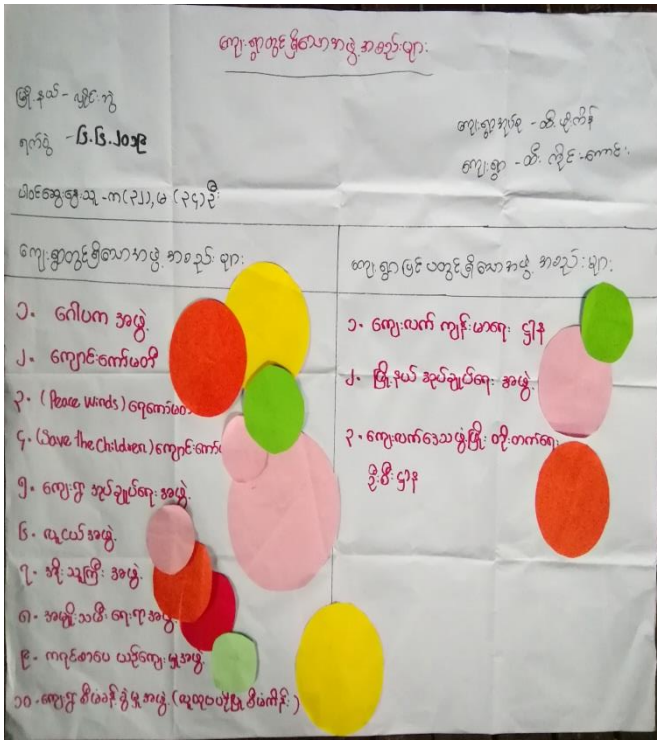 ကျေးရွာတွင်ရှိသောအဖွဲ့အစည်းများ
မြို့နယ် - လှိုင်းဘွဲ
ရက်စွဲ - ၆.၆.၂၀၁၉
ကျေးရွာအုပ်စု - ထီ
ကျေးရွာ - ထီး
ပါဝင်ဆွေးနွေးသူ - က (၃၂), မ (၃၄) ဦး
ကျေးရွာတွင်ရှိသောအဖွဲ့အစည်းများ
၁. ဂေါပက အဖွဲ့
၂. ကျောင်းကော်မတီ
၃. (Peace Winds) ရေကော်မတီ
၄. (Save the Children) ကျောင်းကော်
၅. ကျေးရွာအုပ်ချုပ်ရေးအဖွဲ့
၆. လူငယ်အဖွဲ့
၇. အဖွဲ့
၈. အမျိုးသမီးရေးရာအဖွဲ့
၉. ကရင်စာပေ ယဉ်ကျေးမှုအဖွဲ့
၁၀. ကျေးရွာစီမံခန့်ခွဲမှုအဖွဲ့ (လူထုဗဟိုပြုစီမံကိန်း)
ကျေးရွာပြင်ပတွင်ရှိသောအဖွဲ့အစည်းများ
၁. ကျေးလက်ကျန်းမာရေးဌာန
၂. မြို့နယ်အုပ်ချုပ်ရေးအဖွဲ့
၃. ကျေးလက်ဒေသဖွံ့ဖြိုးတိုးတက်ရေး
ဦးစီးဌာန